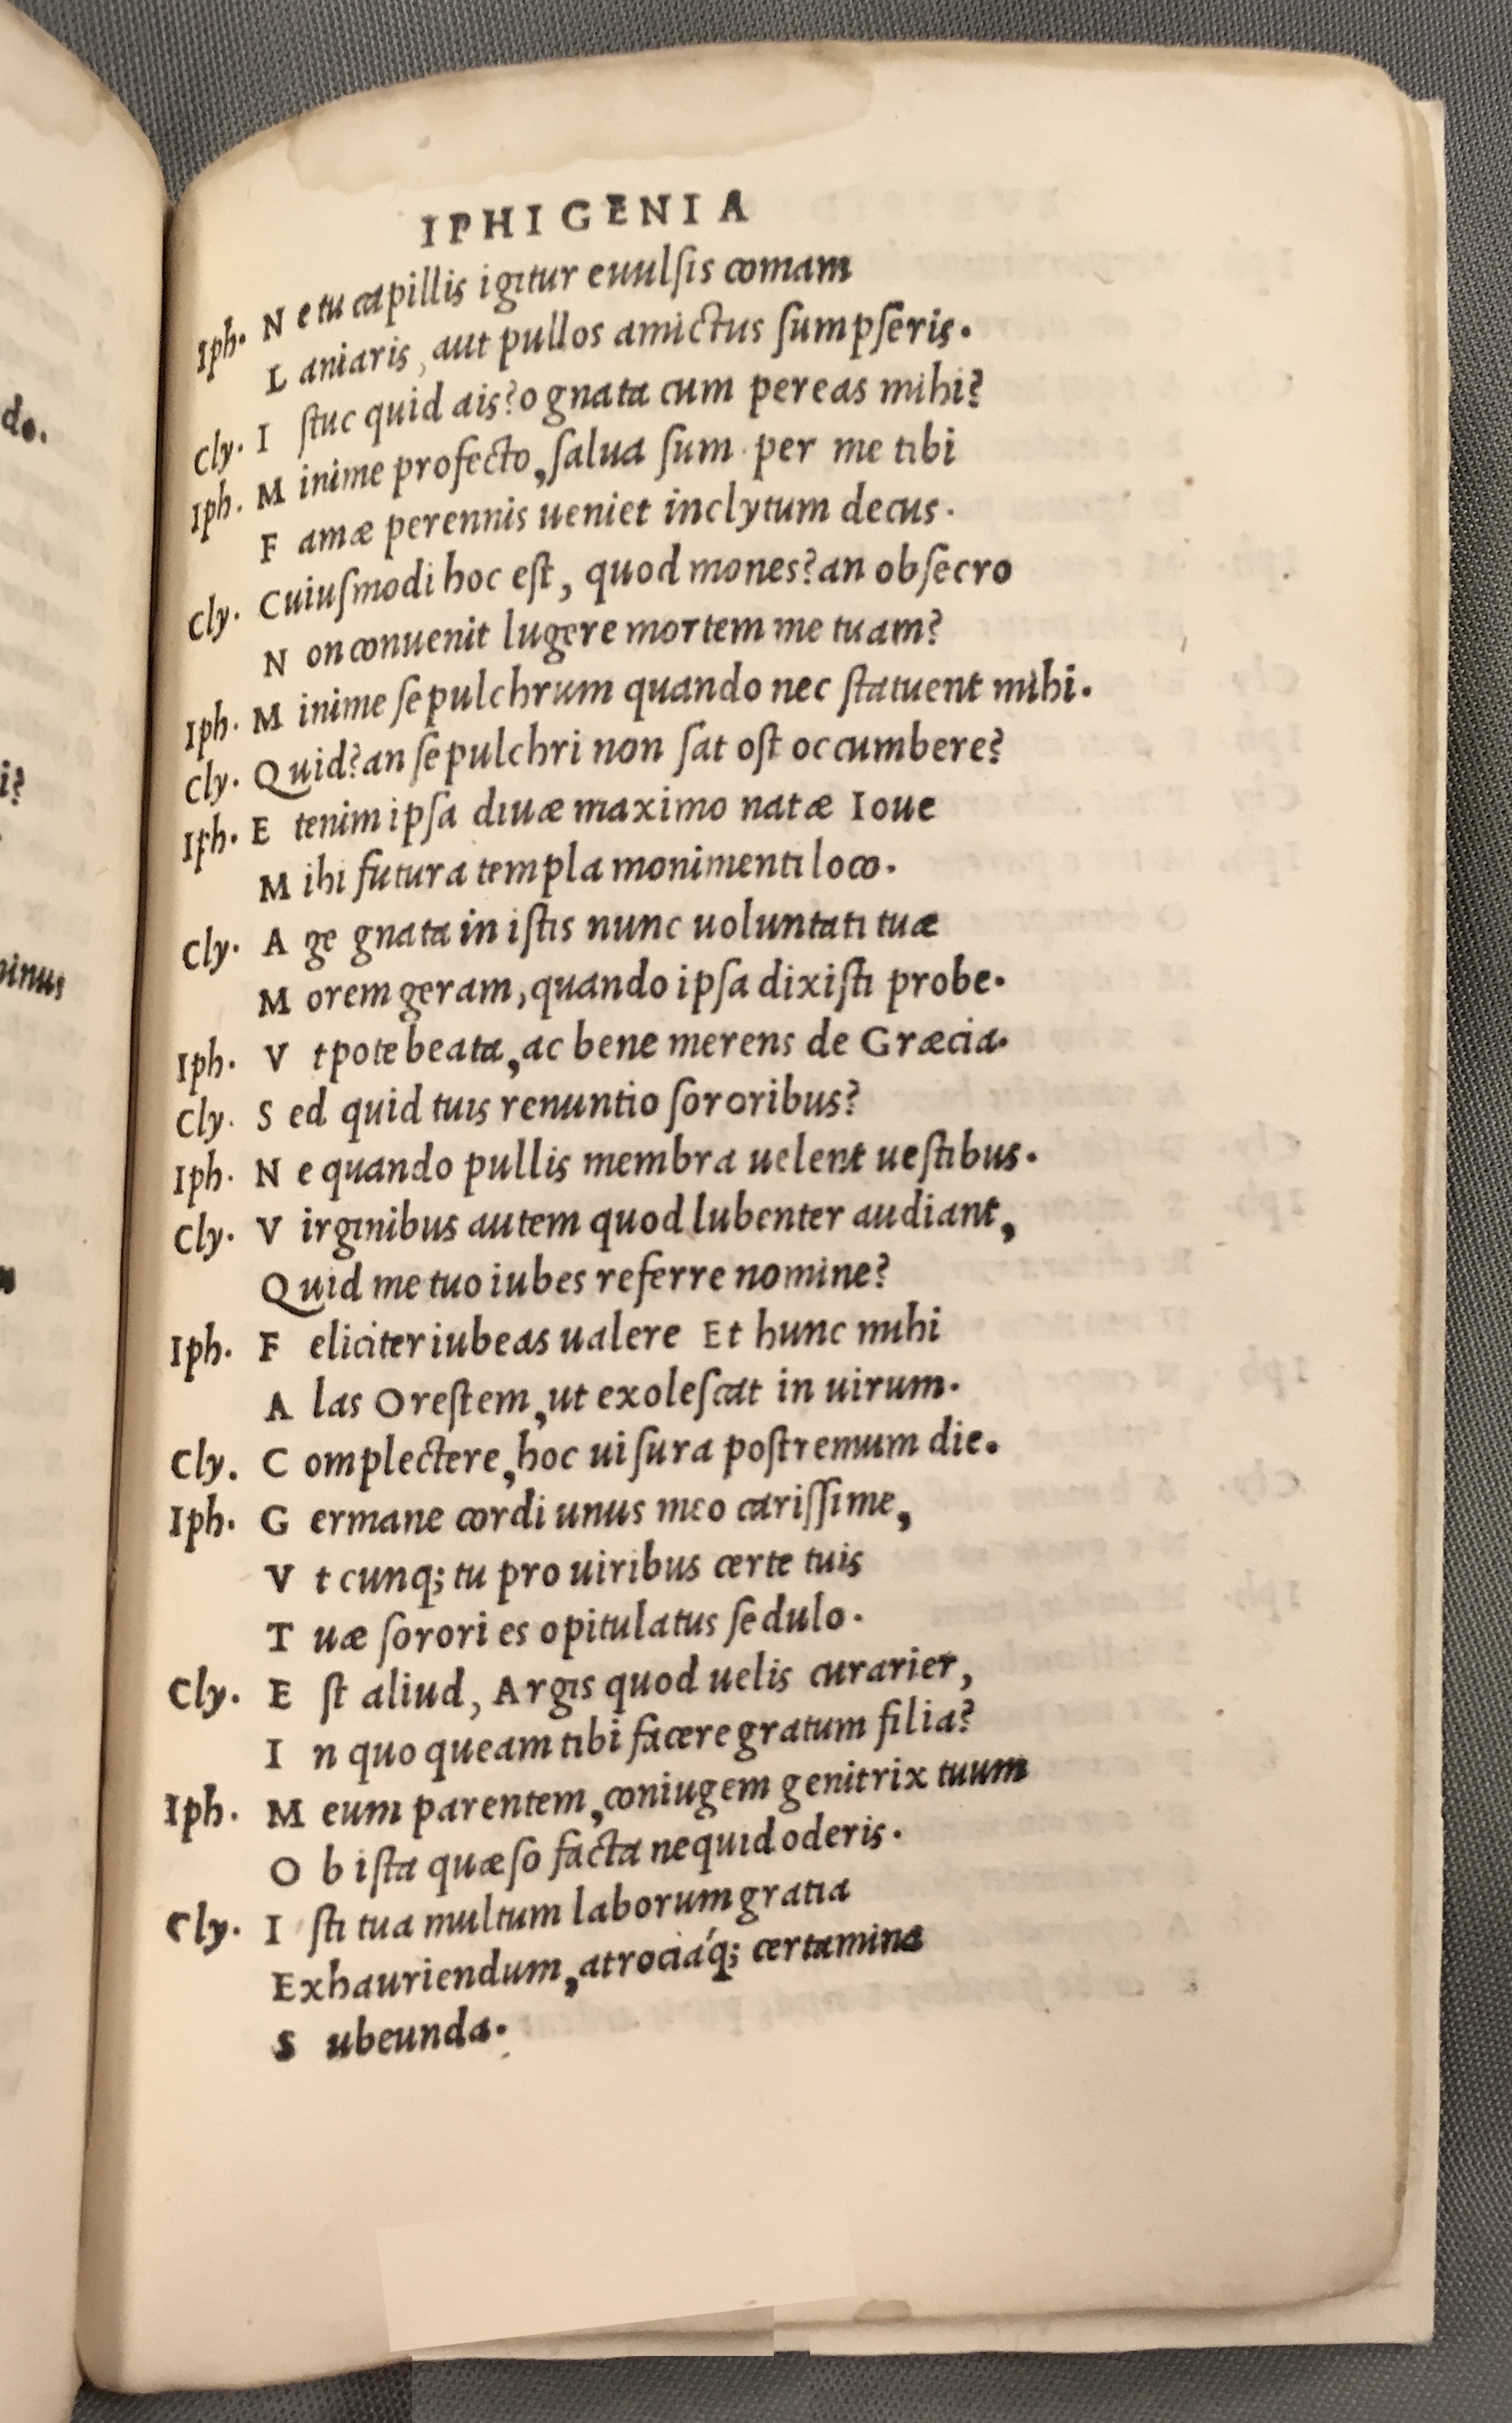 do.
i?
IPHIGENIA
Iph. Ne tu capillis igitur euulſis comam
Laniaris, aut pullos amictus ſumpſeris.
Cly. Iſtuc quid ais? o gnata cum pereas mihi?
Iph. Minime profecto, ſalua ſum per me tibi
Famæ perennis ueniet inclytum decus.
Cly. Cuiuſmodi hoc eſt, quod mones? an obſecro
Non conuenit lugere mortem me tuam?
Iph. Minime ſepulchrum quando nec ſtatuent mihi.
Cly. Quid? an ſepulchri non ſat oſt occumbere?
Iph. Etenim ipſa diuæ maximo natæ Ioue
Mihi futura templa monimenti loco.
Cly. Age gnata in iſtis nunc uoluntati tuæ
Morem geram, quando ipſa dixiſti probe.
Iph. Vtpote beata, ac bene merens de Græcia.
Cly. Sed quid tuis renuntio ſororibus?
Iph. Ne quando pullis membra uelent ueſtibus.
Cly. Virginibus autem quod lubenter audiant,
Quid me tuo iubes referre nomine?
Iph. Feliciter iubeas ualere Et hunc mihi
Alas Oreſtem, ut exoleſcat in uirum.
Cly. Complectere, hoc uiſura poſtremum die.
Iph. Germane cordi unus meo cariſſime,
Vt cunq; tu pro uiribus certe tuis
Tuæ ſorori es opitulatus ſedulo.
Cly. Eſt aliud, Argis quod uelis curarier,
In quo queam tibi facere gratum filia?
Iph. Meum parentem, coniugem genitrix tuum
Ob iſta quæſo facta nequid oderis.
Cly. Iſti tua multum laborum gratia
Exhauriendum, atrociáq; certamina
Subeunda.